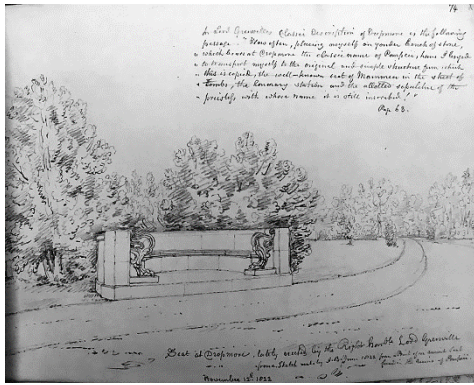 74
In Lord Grenville's Classic Description of Dropmore is the following
passage. "How often, placing myself on yonder bench of stone,
which bears at Dropmore the classic name of Pompeii, have I
to transport myself to the original and simple structure from which
this is copied, the well-known seat of Mammea in the street of
Tombs, the honorary station and the allotted sepulchre of the
priestess, with whose name it is still inscribed!"
Page 63.
Seat at Dropmore, lately erected by the Right Honble Lord Grenville
from a Sketch made by June 1822 from a of an ancient Seat
the ruins of Pompeii
November 12th 1822